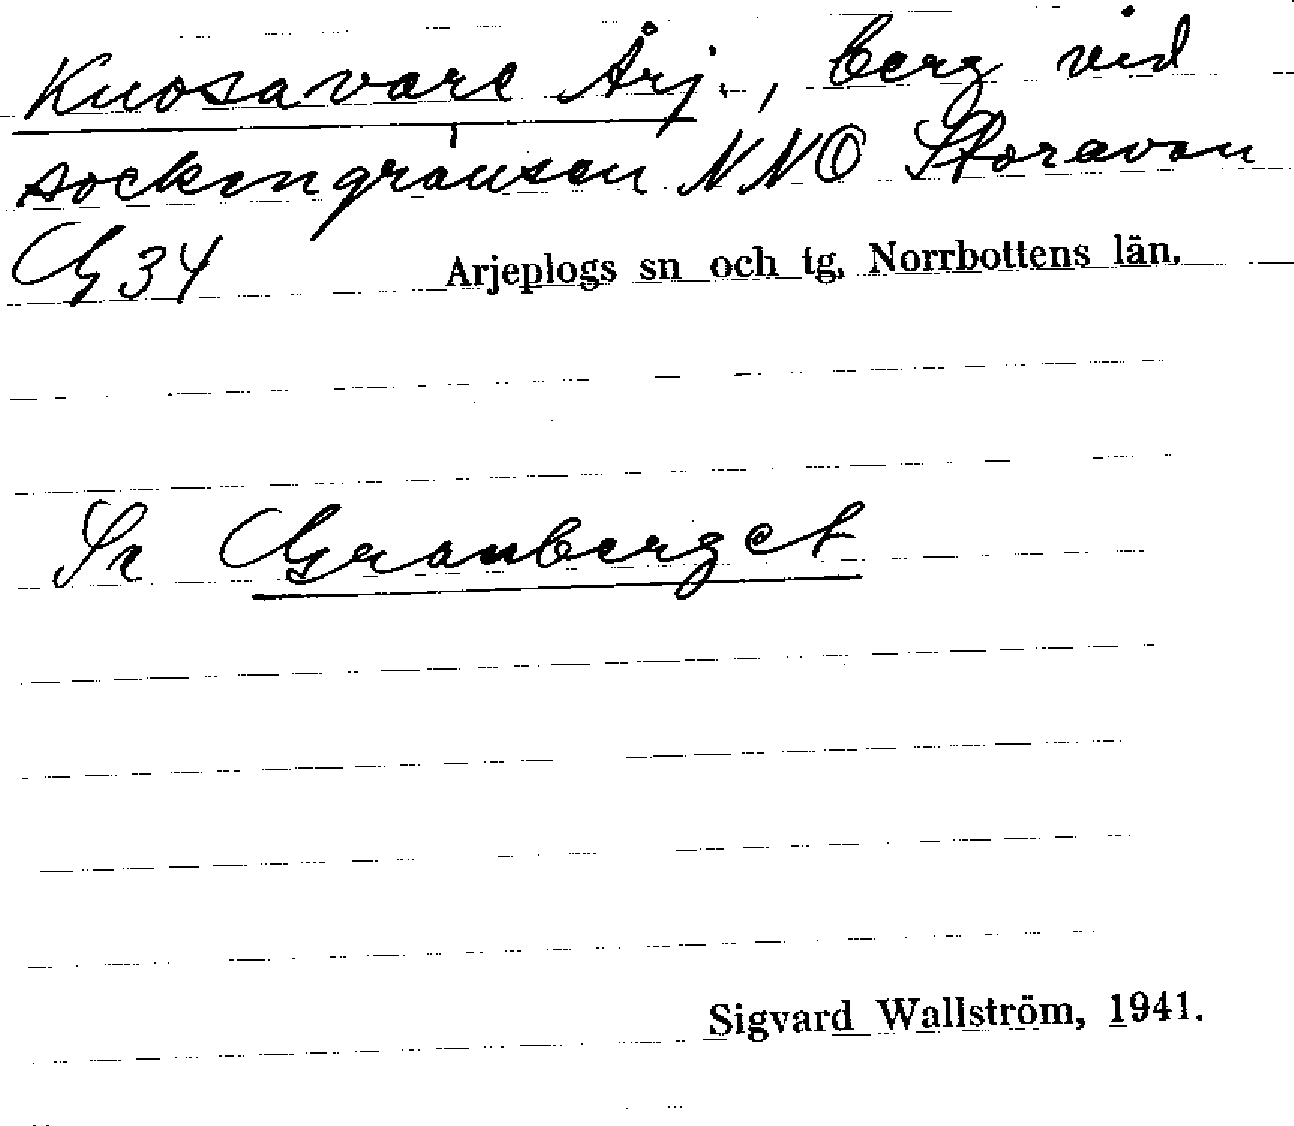 Kuosavare Arj., berg vid
sockengränsen NNO Storavan
G 34 Arjeplogs sn och tg. Norrbottens län.
Sv Granberget
Sigvard Wallström, 1941.